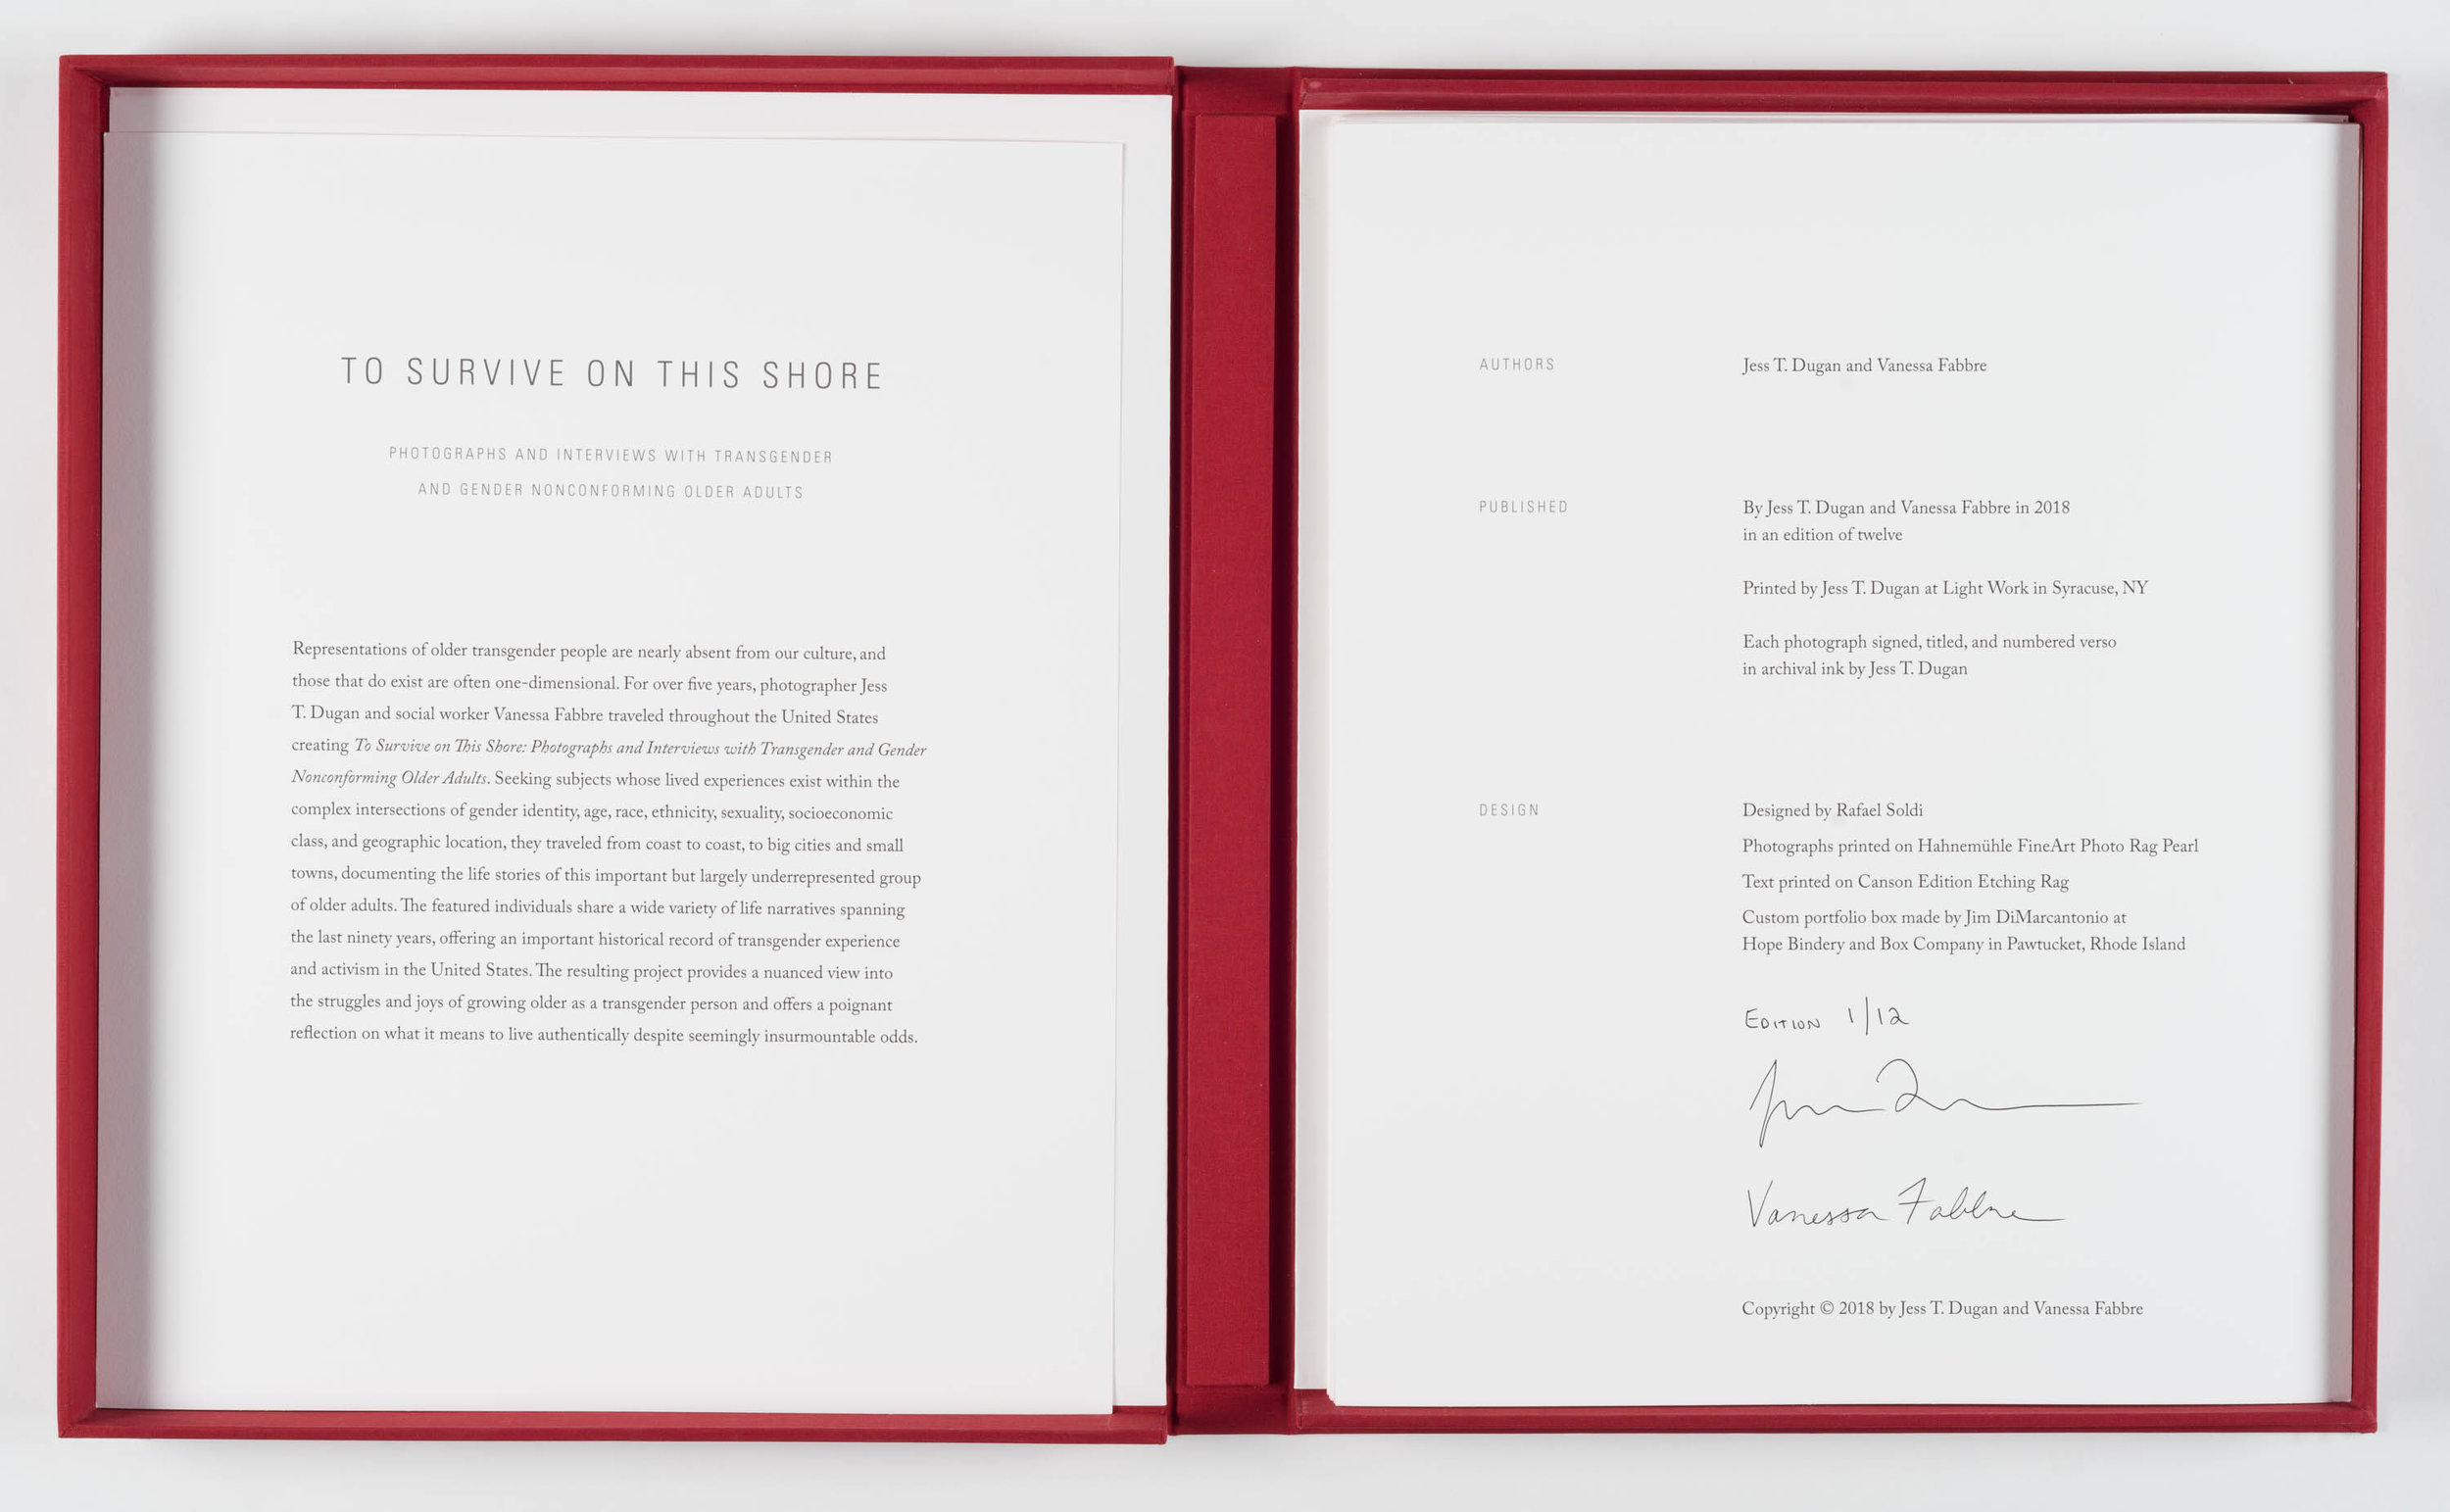 TO SURVIVE ON THIS SHORE
PHOTOGRAPHS AND INTERVIEWS WITH TRANSGENDER
AND GENDER NONCONFORMING OLDER ADULTS
Representations of older transgender people are nearly absent from our culture, and
those that do exist are often one-dimensional. For over five years, photographer Jess
T. Dugan and social worker Vanessa Fabbre traveled throughout the United States
creating To Survive on This Shore: Photographs and Interviews with Transgender and Gender
Nonconforming Older Adults. Seeking subjects whose lived experiences exist within the
complex intersections of gender identity, age, race, ethnicity, sexuality, socioeconomic
class, and geographic location, they traveled from coast to coast, to big cities and small
towns, documenting the life stories of this important but largely underrepresented group
of older adults. The featured individuals share a wide variety of life narratives spanning
the last ninety years, offering an important historical record of transgender experience
and activism in the United States. The resulting project provides a nuanced view into
the struggles and joys of growing older as a transgender person and offers a poignant
reflection on what it means to live authentically despite seemingly insurmountable odds.
AUTHORS Jess T. Dugan and Vanessa Fabbre
PUBLISHED By Jess T. Dugan and Vanessa Fabbre in 2018
in an edition of twelve
Printed by Jess T. Dugan at Light Work in Syracuse, NY
Each photograph signed, titled, and numbered verso
in archival ink by Jess T. Dugan
DESIGN Designed by Rafael Soldi
Photographs printed on Hahnemühle FineArt Photo Rag Pearl
Text printed on Canson Edition Etching Rag
Custom portfolio box made by Jim DiMarcantonio at
Hope Bindery and Box Company in Pawtucket, Rhode Island
EDITION 1/12
Vanessa Fabbre
Copyright © 2018 by Jess T. Dugan and Vanessa Fabbre